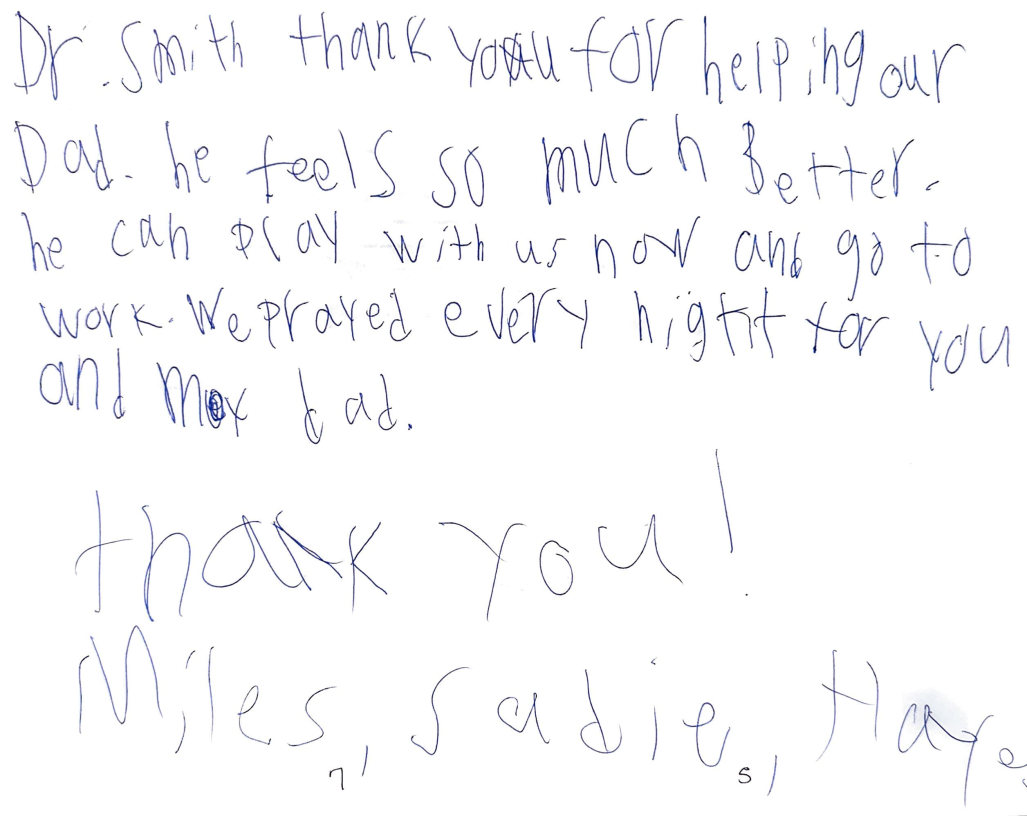 Dr. Smith thank you for helping our
Dad. he feels so much Better.
he can play with us now and go to
work. We prayed every night for you
and my dad.
thank you!
Miles, Sadie,
7 5